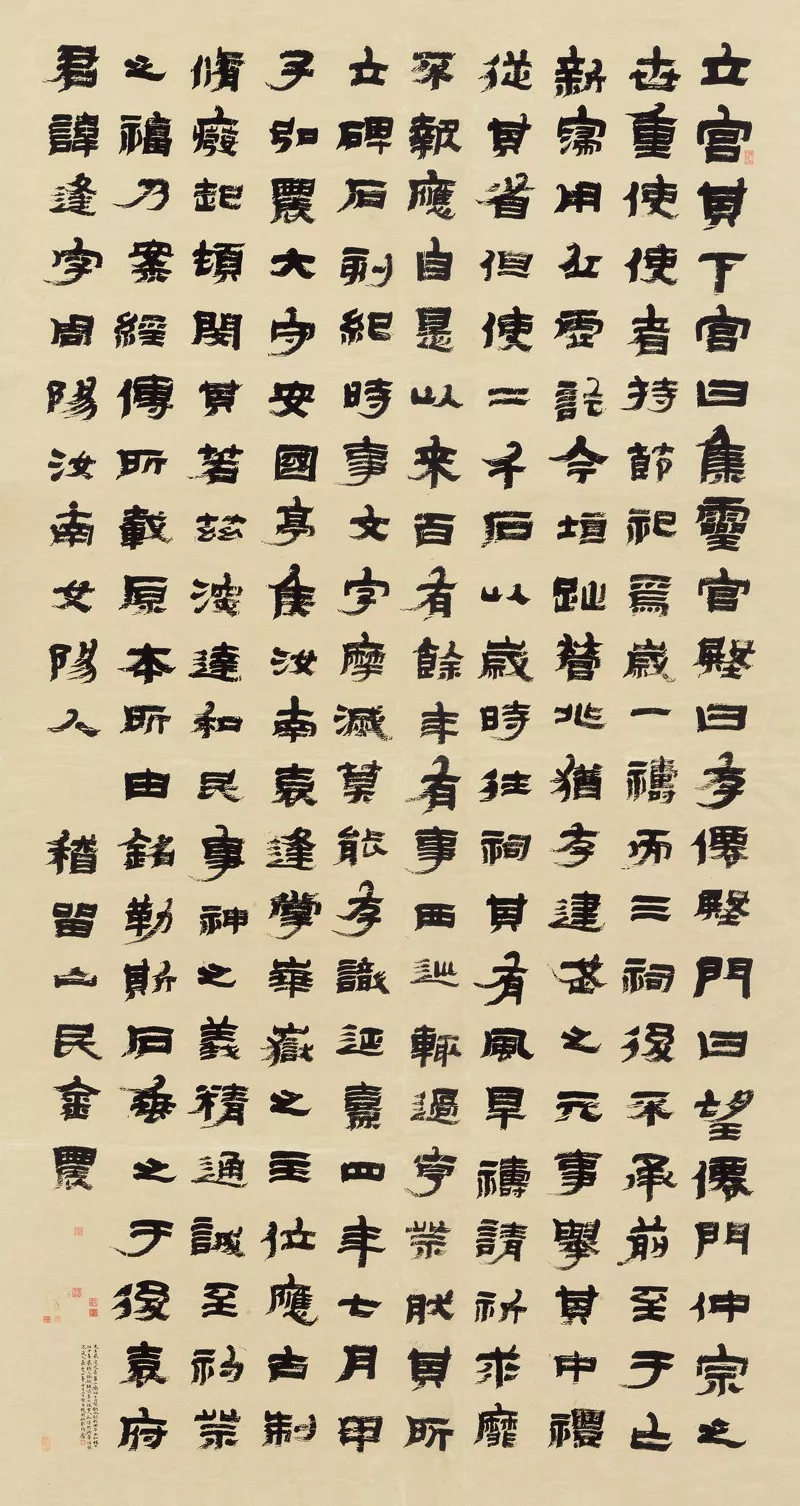 立宮其下宮曰集靈宮壂曰存僊壂門曰望僊門仲宗之
世重使使者持節祀焉歲一禱而三祠後不承前至于亡
新寖用丘虛訖今垣趾營兆猶存建武之元事舉其中禮
從其省但使二千石以歲時往祠其有風旱禱請祈求靡
不報應自是以来百有餘年有事西巡輒過亨祭然其所
立碑石刻紀時事文字摩滅莫能存識延熹四年七月甲
子弘農大守安國亭侯汝南袁逢掌華嶽之主位應古制
脩廢起頓閔其若茲深達和民事神之義精通誠至礿祭
之福乃案經傳所載原本所由銘勒斯石垂之于後袁府
君諱逢字周陽汝南女陽人 稽留山民金農